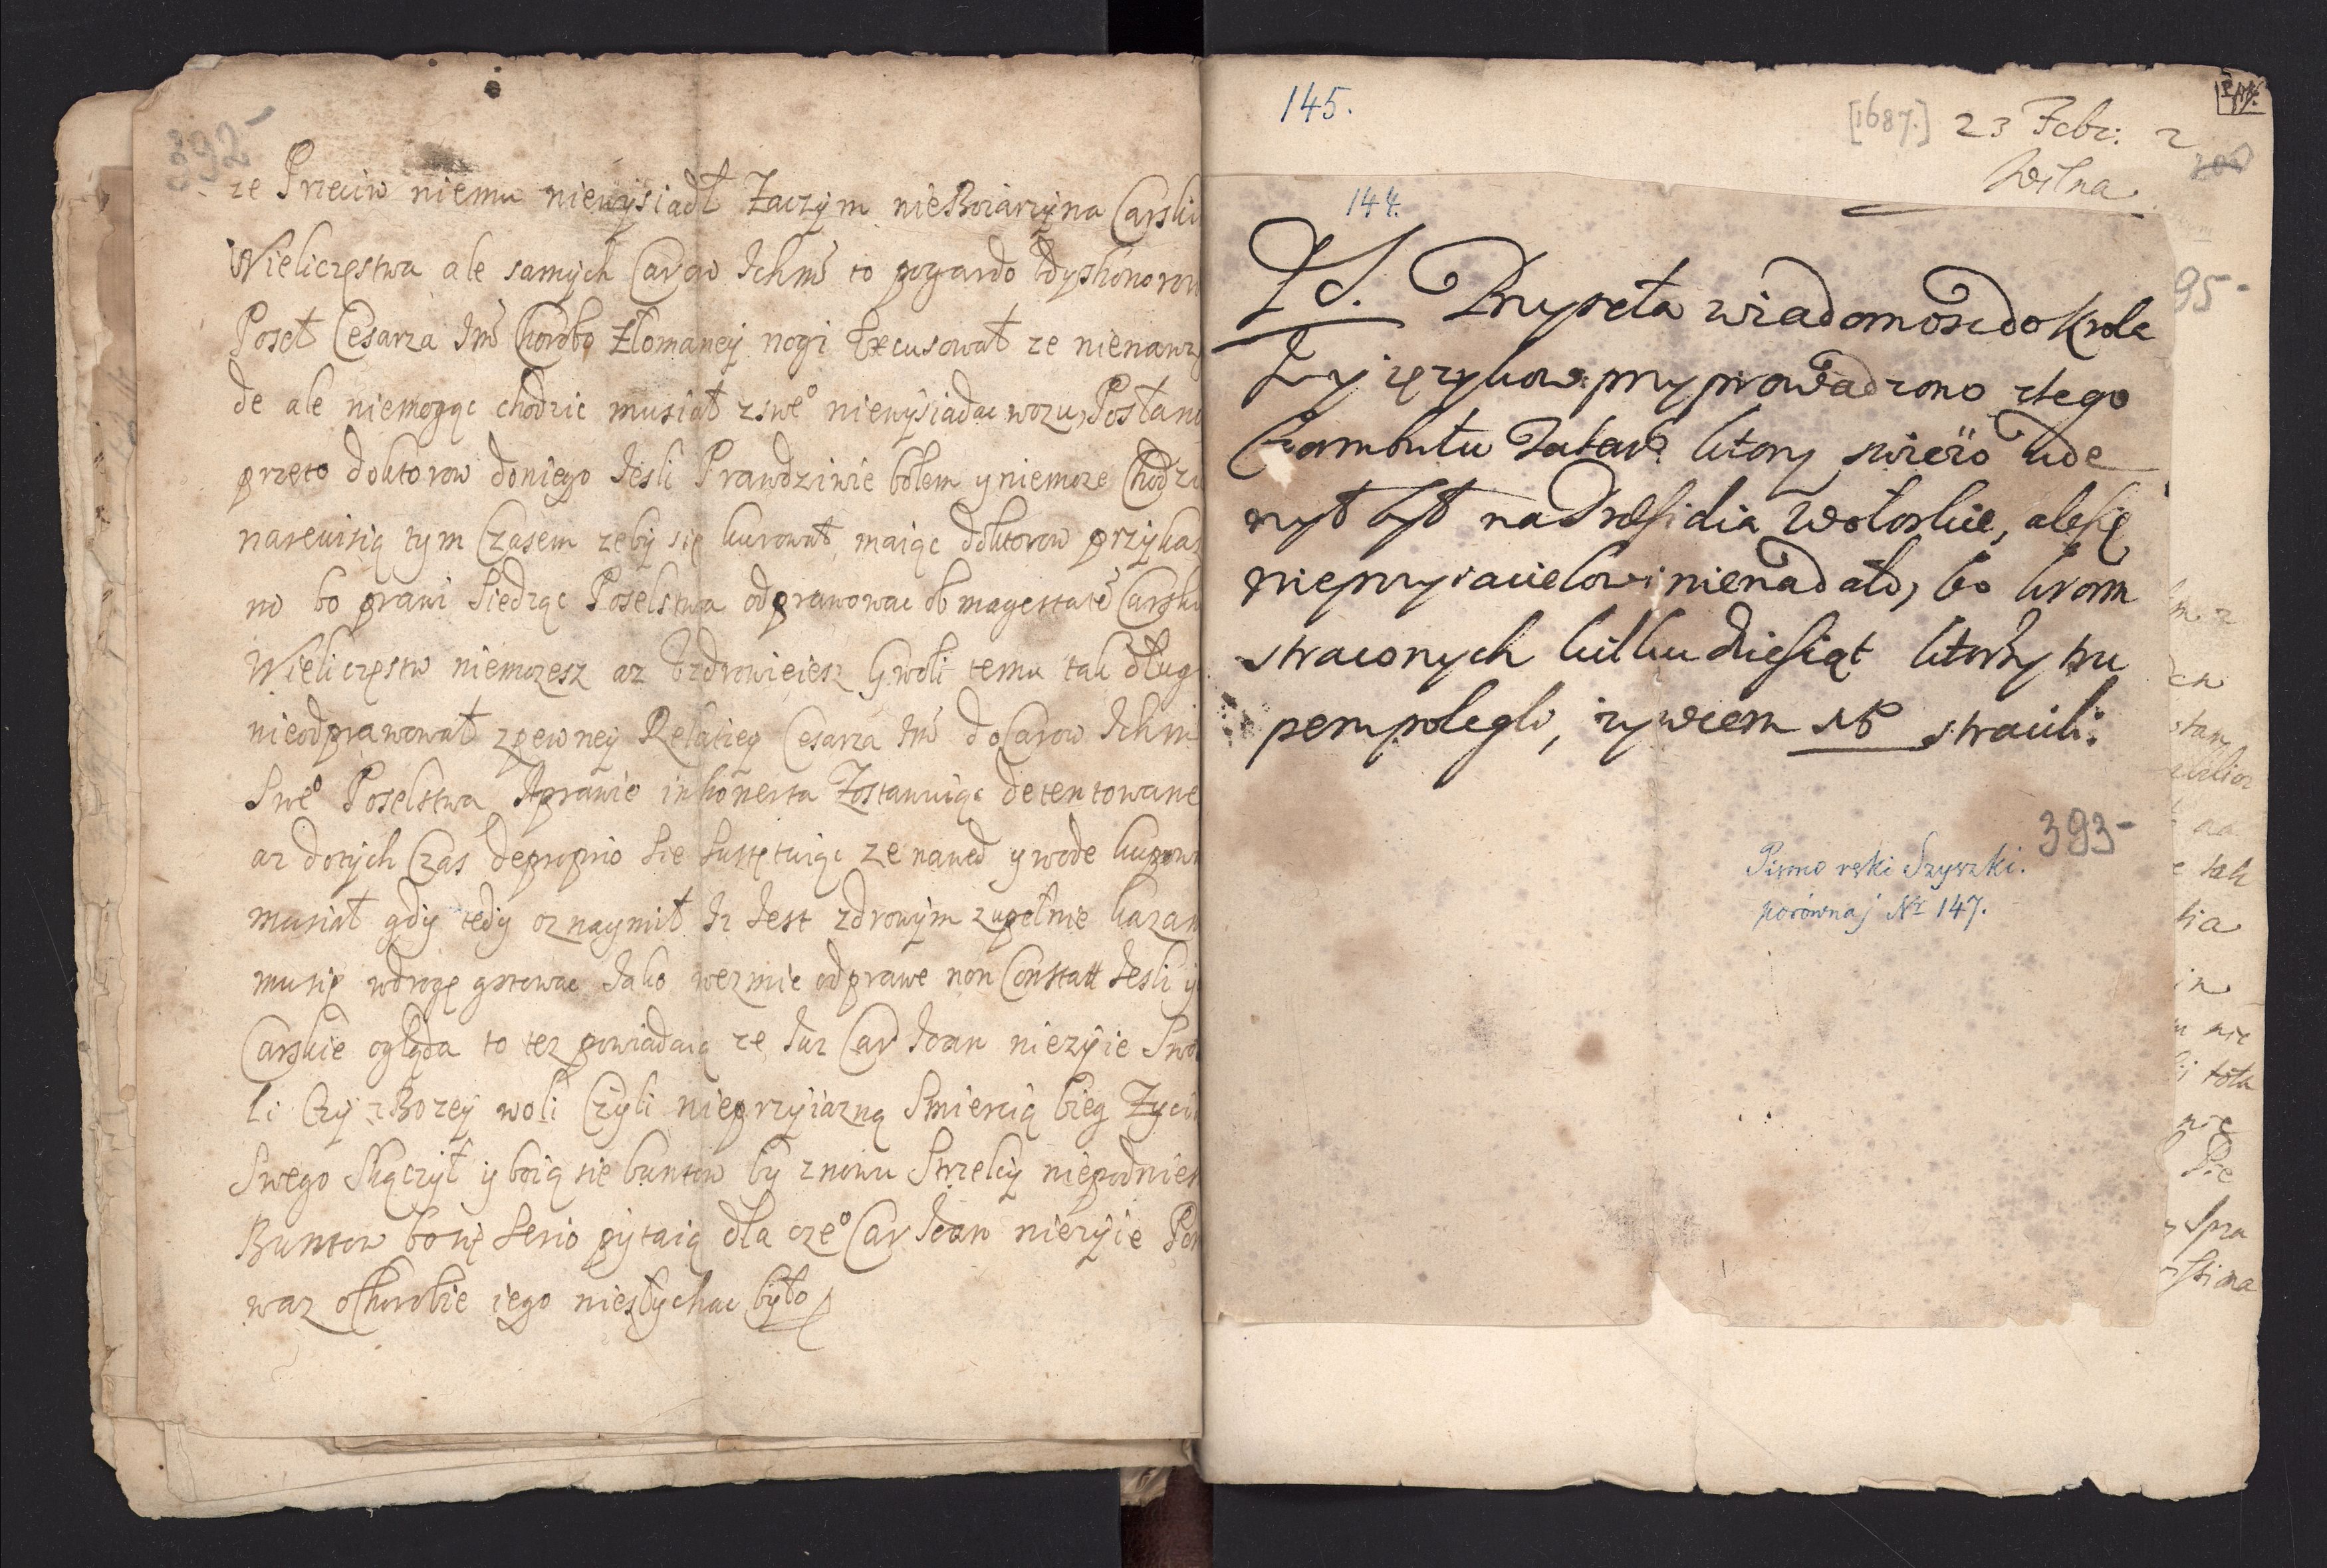 392-
ze Przeciw niemu niewysiadł Zaczym nie Boiarzyna Carski
Wieliczęstwa ale samych Carow Ichm̃ to pogardo
Poseł Cesarza Jm̃ Chorobo złomaney nogi Excusował ze nienawz
de ale niemogąc chodzic musiał z sweº niewysiadac wozu, Posłano
przeto doktorow doniego Jesli Prawdziwie bolem y niemoze Chodzi
tym Czasem zeby się kurował, maiąc doktorow przykaz
no bo prawi Siedząc Poselstwa odprawowac ob magestatẽ Carsk
Wieliczęstw niemozesz az Ozdrowieiesz Gwoli temu tak długo
nieodprawował zpewney Relatiey Cesarza Jm̃ do Carow Ichm
Sweº Poselstwa Aprawie inhonesta Zostawuiąc detentowane
az dotych Czas deproprio Sie Sustętuiąc ze nawed y wode kupow
musiał gdy tedy oznaymił Iz Iest zdrowym zupełnie kazan
musię wdrogę gotowac Iako wezmie odprawe non Constatt Iesli y
Carskie ogłąda to tez powiadaią ze Iuz Car Iwan niezyie Swo
li Czy z Bozey woli Czyli nieprzyiazną Smiercią bieg Zyci
Swego Skączył y boią sie buntow by znowu Strzelcy niepodnies
Buntow bo się Serio pytaią dla czeº Car Iwan niezyie Po
waz o Chorobie iego niesłychac było
145.
[1687.] 23 Febr: 2
Wilna
144.
Przyszeła wiadomosc do Krola
Ięzykow przyprowadzono ztego
Czambułu Tatarõ ktory swiezo ude
rzył był na Præsidia Wołoskie, ale się
nieprzyiacielowi nienadało, bo krom
straconych kilku dziesiąt ktorzy tru
pem polegli, zywcem 16 stracili.
393-
Pismo ręki Szyszki.
porównaj Nr 147.
95-